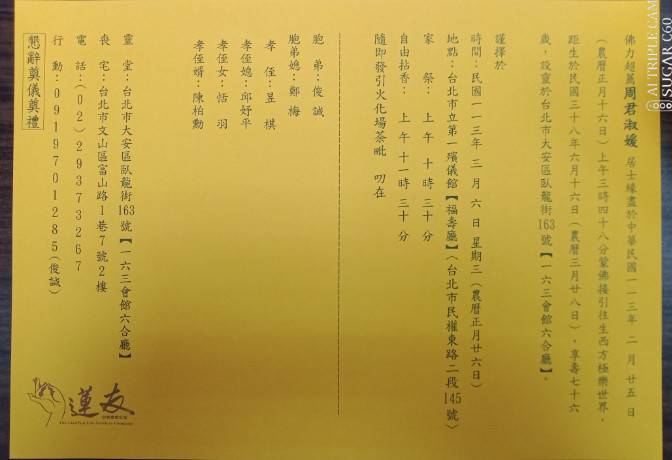 佛力超薦 周君淑媛 居士緣盡於中華民國一一三年 二月 廿五日
(農曆正月十六日)上午三時四十八分蒙佛接引往生西方極樂世界,
距生於民國三十八年六月十六日(農曆三月廿八日),享壽七十六
歲。設靈於台北市大安區臥龍街163號【一六三會館六合廳】。
謹擇於
時間:民國一一三年 三月 六日 星期三(農曆正月廿六日)
地點:台北市立第一殯儀館【福壽廳】(台北市民權東路二段145號)
家祭: 上午 十時 三十分
自由拈香: 上午 十一時 三十分
隨即發引火化場荼毗 叨在
胞弟:俊誠
胞弟媳:鄭梅
孝侄:昱棋
孝侄媳:邱妤平
孝侄女:恬羽
孝侄婿:陳柏勳
靈堂:台北市大安區臥龍街163號【一六三會館六合廳】
喪宅:台北市文山區富山路1巷7號2樓
電話:(02)29373267
行動:0919701285(俊誠)
懇辭奠儀奠禮
蓮友
AI TRIPLE CAM
SUGAR C60